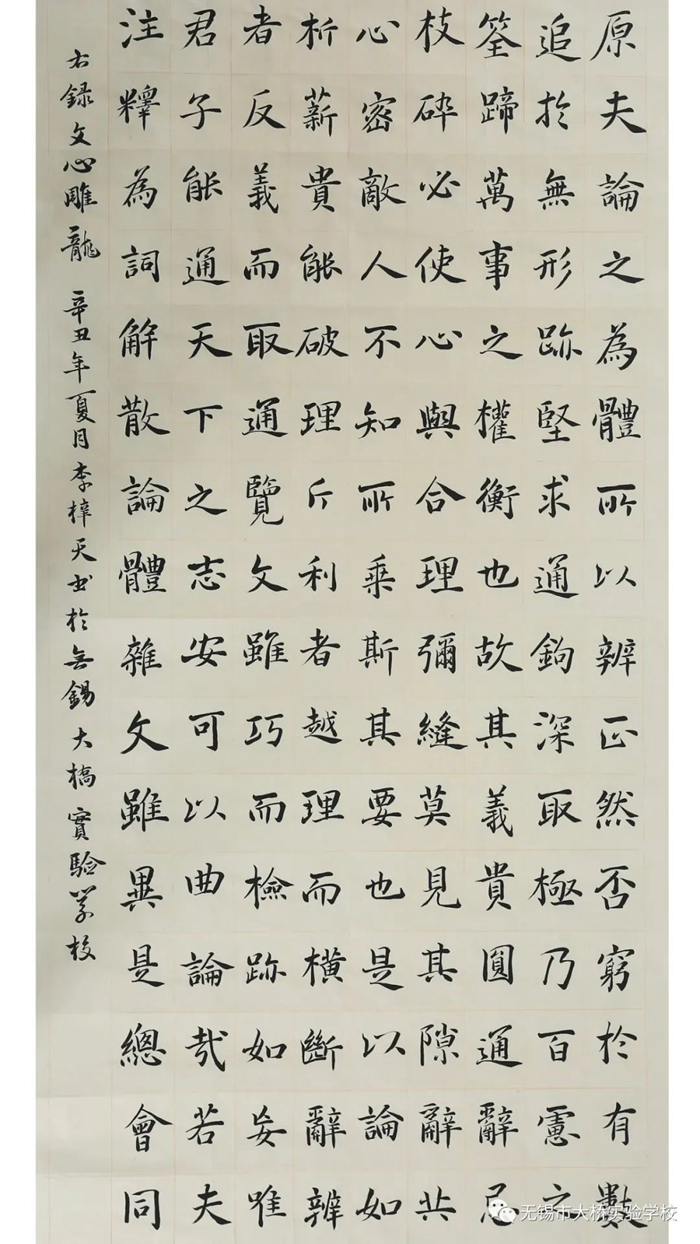 原夫論之為體所以辨正然否窮於有數
追於無形跡堅求通鉤深取極乃百慮之
筌蹄萬事之權衡也故其義貴圓通辭忌
枝碎必使心與合理彌縫莫見其隙辭共
心密敵人不知所乘斯其要也是以論如
析薪貴能破理斤利者越理而橫斷辭辨
者反義而取通覽文雖巧而檢跡如妄唯
君子能通天下之志安可以曲論哉若夫
注釋為詞解散論體雜文雖異是總會同
右録文心雕龍 辛丑年夏月李梓天书於無錫大橋實驗學校
无锡市大桥实验学校